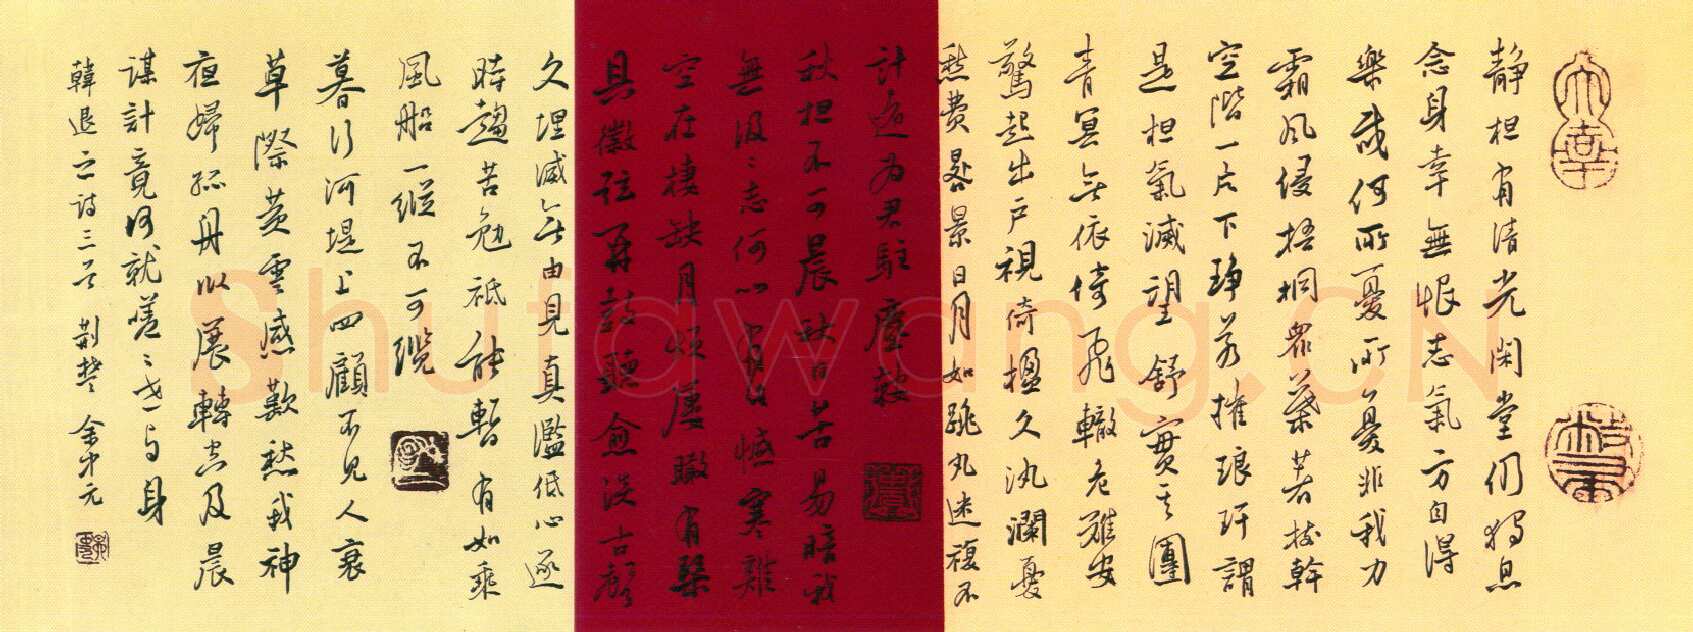 静夜有清光閑堂仍獨息
念身幸無恨志氣方自得
樂哉何所憂所憂非我力
霜风侵梧桐眾葉著樹幹
空階一片下琤若摧琅玕謂
是夜氣滅望舒實其團
青冥無依倚飛轍危難安
驚起出户視倚楹久汍瀾憂
愁費晷景日月如跳丸迷複不
計遠为君駐塵鞍
秋夜不可晨秋日苦易暗我
無汲〻志何以有此憾寒雞
空在棲缺月煩屢瞰有琴
具徽弦再鼓聽愈淡古聲
久埋滅無由見真濫低心逐
時趨苦勉祗能暫有如乘
風船一縱不可纜
暮行河堤上四顧不見人衰
草際黄雲感歎愁我神
夜歸孤舟臥展轉空及晨
謀計竟何就嗟〻世与身
韓退之詩三首 荆楚 余元
Shufawang.CN